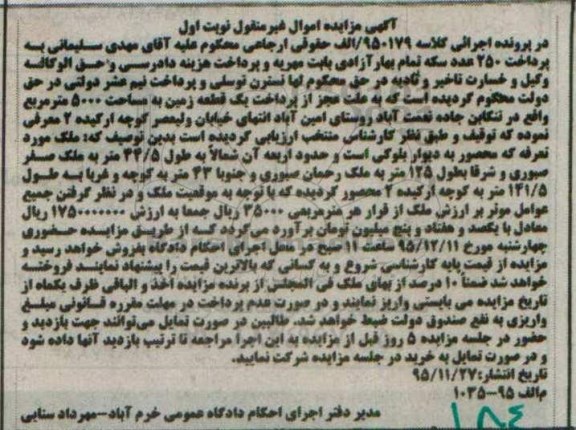 آگهی مزایده اموال غیرمنقول نوبت اول
در پرونده اجرائی کلاسه ۹۵۰۱۷۹/الف حقوقی ارجاعی محکوم علیه آقای مهدی سلیمانی به
پرداخت ۲۵۰ عدد سکه تمام بهارآزادی بابت مهریه و پرداخت هزینه دادرسی و حق الوکاله
وکیل و خسارت تاخیر و تادیه در حق محکوم لها نسترن توسلی و پرداخت نیم عشر دولتی در حق
دولت محکوم گردیده است که به علت عجز از پرداخت یک قطعه زمین به مساحت ۵۰۰۰ مترمربع
واقع در تنکابن جاده نعمت آباد روستای امین آباد انتهای خیابان ولیعصر کوچه ارکیده ۲ معرفی
نموده که توقیف و طبق نظر کارشناس منتخب ارزیابی گردیده است بدین توصیف که: ملک مورد
تعرفه که محصور به دیوار بلوکی است و حدود اربعه آن شمالا به طول ۳۴/۵ متر به ملک صفر
صبوری و شرقا بطول ۱۲۵ متر به ملک رحمان صبوری و جنوبا ۴۳ متر به کوچه و غربا به طول
۱۳۱/۵ متر به کوچه ارکیده ۲ محصور گردیده که با توجه به موقعیت ملک و در نظر گرفتن جمیع
عوامل موثر بر ارزش ملک از قرار هر مترمربعی ۳۵۰۰۰ ریال جمعا به ارزش ۱۷۵۰۰۰۰۰۰۰ ریال
معادل با یکصد و هفتاد و پنج میلیون تومان برآورد می‌گردد که از طریق مزایده حضوری
چهارشنبه مورخ ۹۵/۱۲/۱۱ ساعت ۱۱ صبح در محل اجرای احکام دادگاه بفروش خواهد رسید و
مزایده از قیمت پایه کارشناسی شروع و به کسانی که بالاترین قیمت را پیشنهاد نمایند فروخته
خواهد شد ضمناً ۱۰ درصد از بهای ملک فی المجلس از برنده مزایده اخذ و الباقی ظرف یکماه از
تاریخ مزایده می بایستی واریز نمایند و در صورت عدم پرداخت در مهلت مقرره قانونی مبلغ
واریزی به نفع صندوق دولت ضبط خواهد شد. طالبین در صورت تمایل می‌توانند جهت بازدید و
حضور در جلسه مزایده ۵ روز قبل از مزایده به این اجرا مراجعه تا ترتیب بازدید آنها داده شود
و در صورت تمایل به خرید در جلسه مزایده شرکت نمایید.
تاریخ انتشار: ۹۵/۱۱/۲۷
م‌الف ۹۵-۱۰۳۵
مدیر دفتر اجرای احکام دادگاه عمومی خرم آباد-مهرداد سنایی
۱۸۴